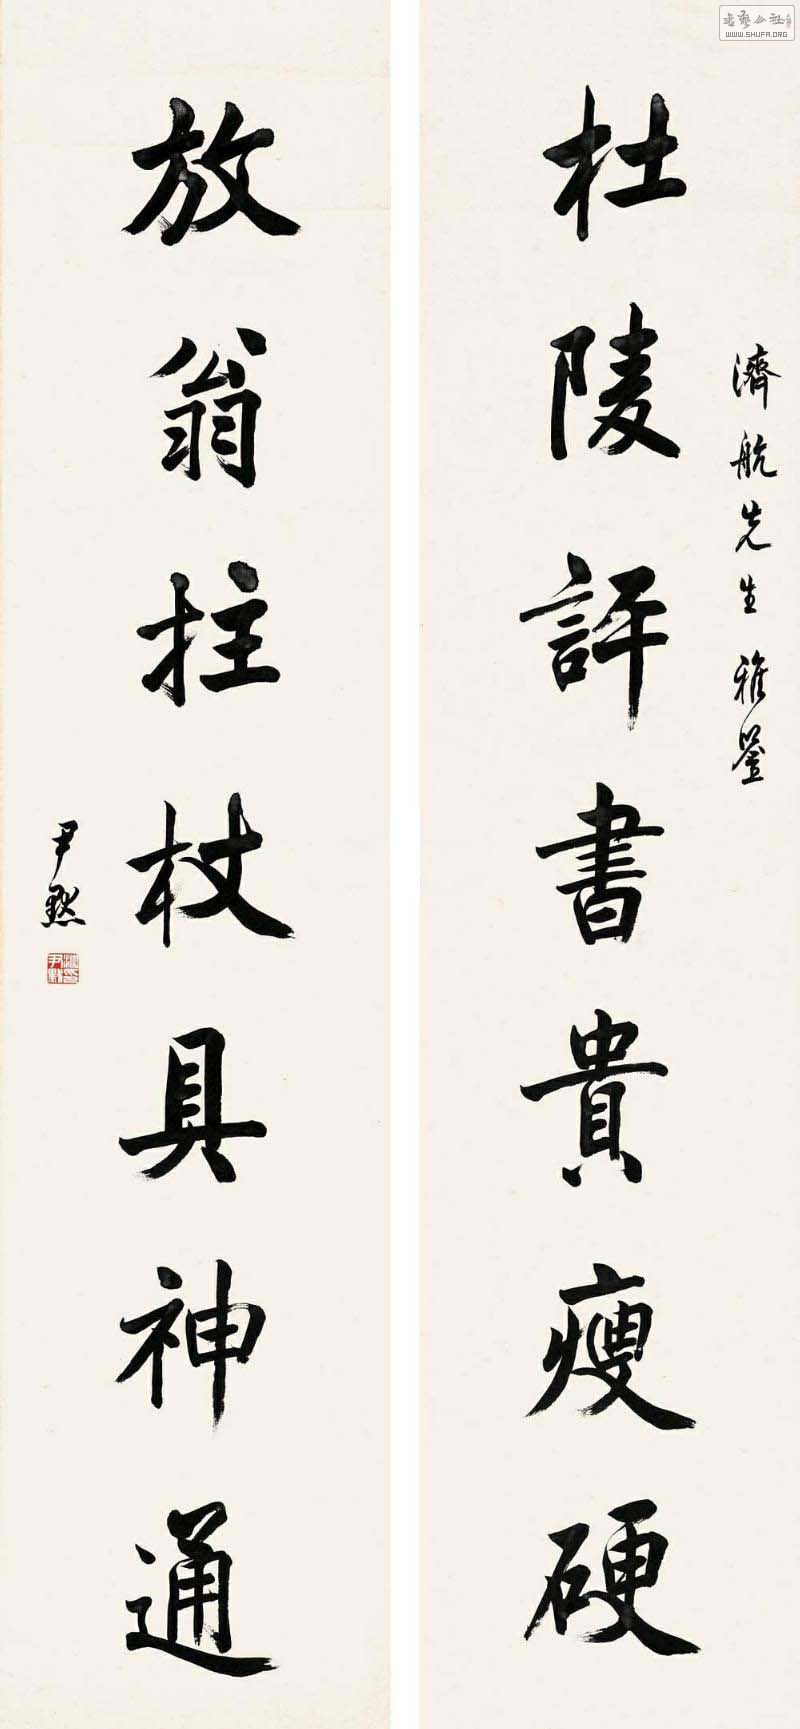 杜陵評書貴瘦硬
濟航先生雅鑒
放翁拄杖具神通
尹默
書藝公社
WWW.SHUFA.ORG